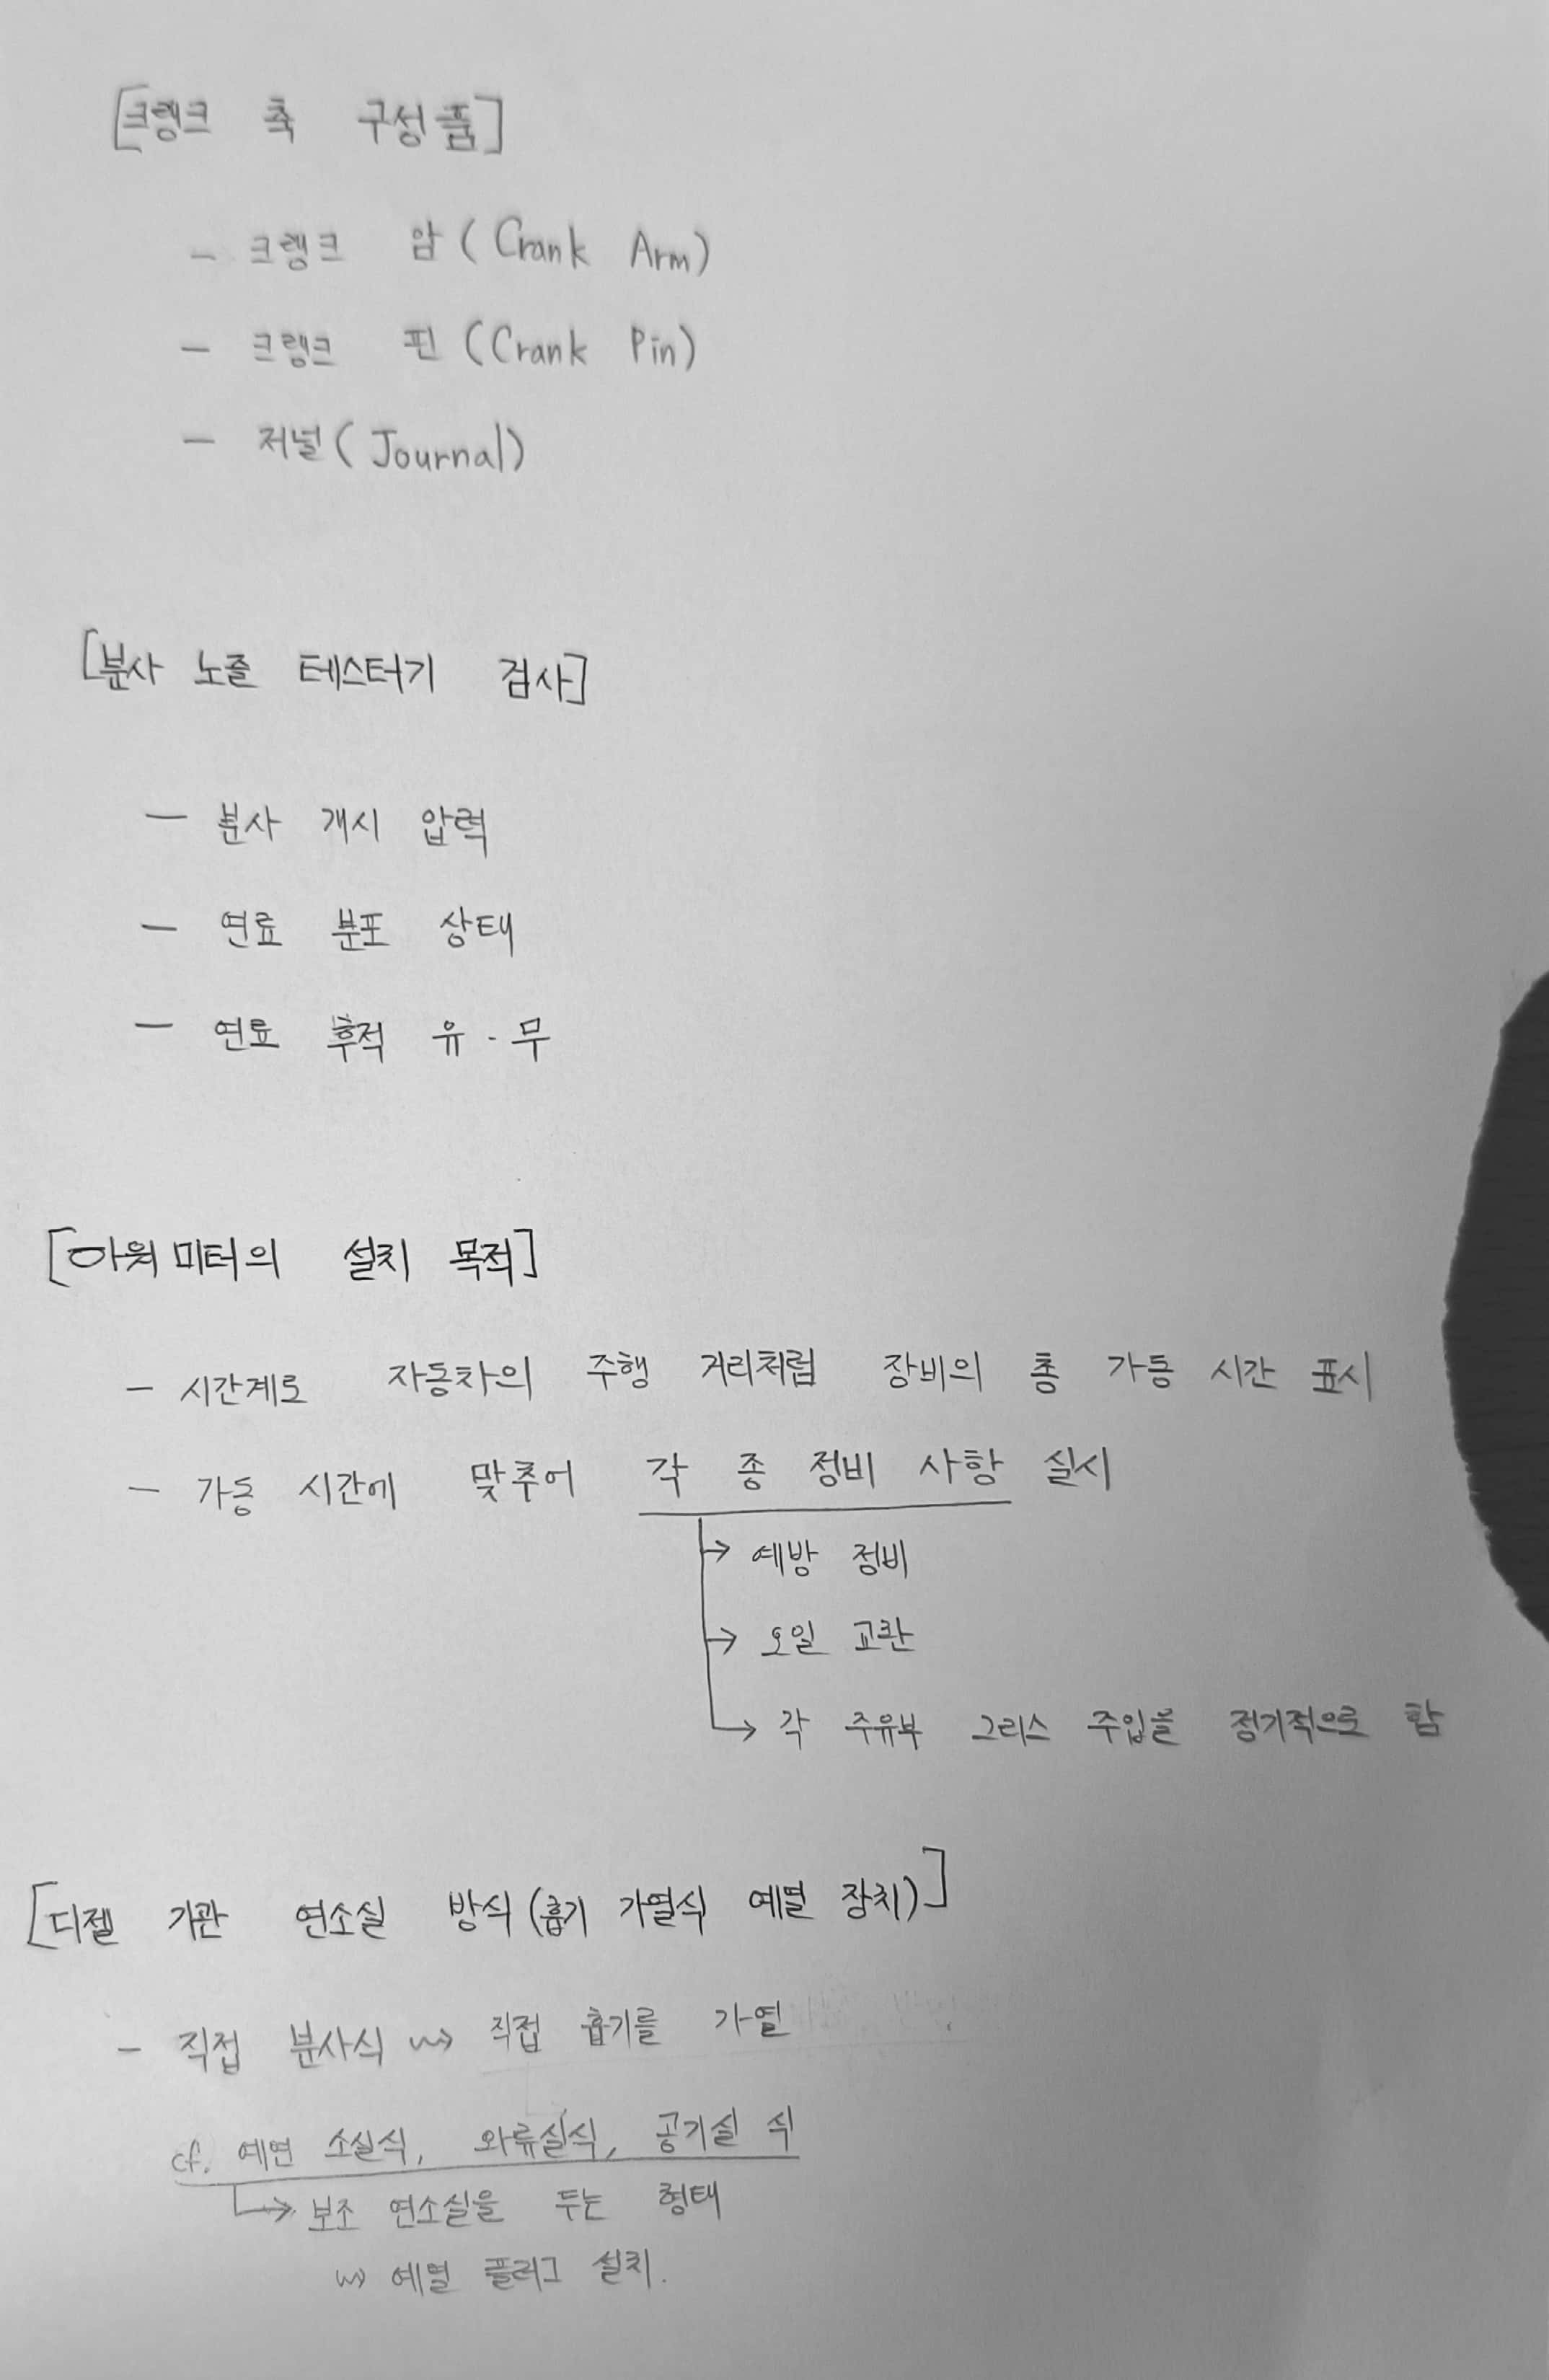 [크랭크 축 구성품]
- 크랭크 암(Crank Arm)
- 크랭크 핀(Crank Pin)
- 저널(Journal)
[분사 노즐 테스터기 검사]
- 분사 개시 압력
- 연료 분포 상태
- 연료 후적 유·무
[아워미터의 설치 목적]
- 시간계로 자동차의 주행 거리처럼 장비의 총 가동 시간 표시
- 가동 시간에 맞추어 각 종 정비 사항 실시
→ 예방 정비
→ 오일 교환
→ 각 주유부 그리스 주입을 정기적으로 함
[디젤 기관 연소실 방식(흡기 가열식 예열 장치)]
- 직접 분사식 ⇝ 직접 흡기를 가열
cf. 예연 소실식, 와류실식, 공기실 식
→ 보조 연소실을 두는 형태
⇝ 예열 플러그 설치.